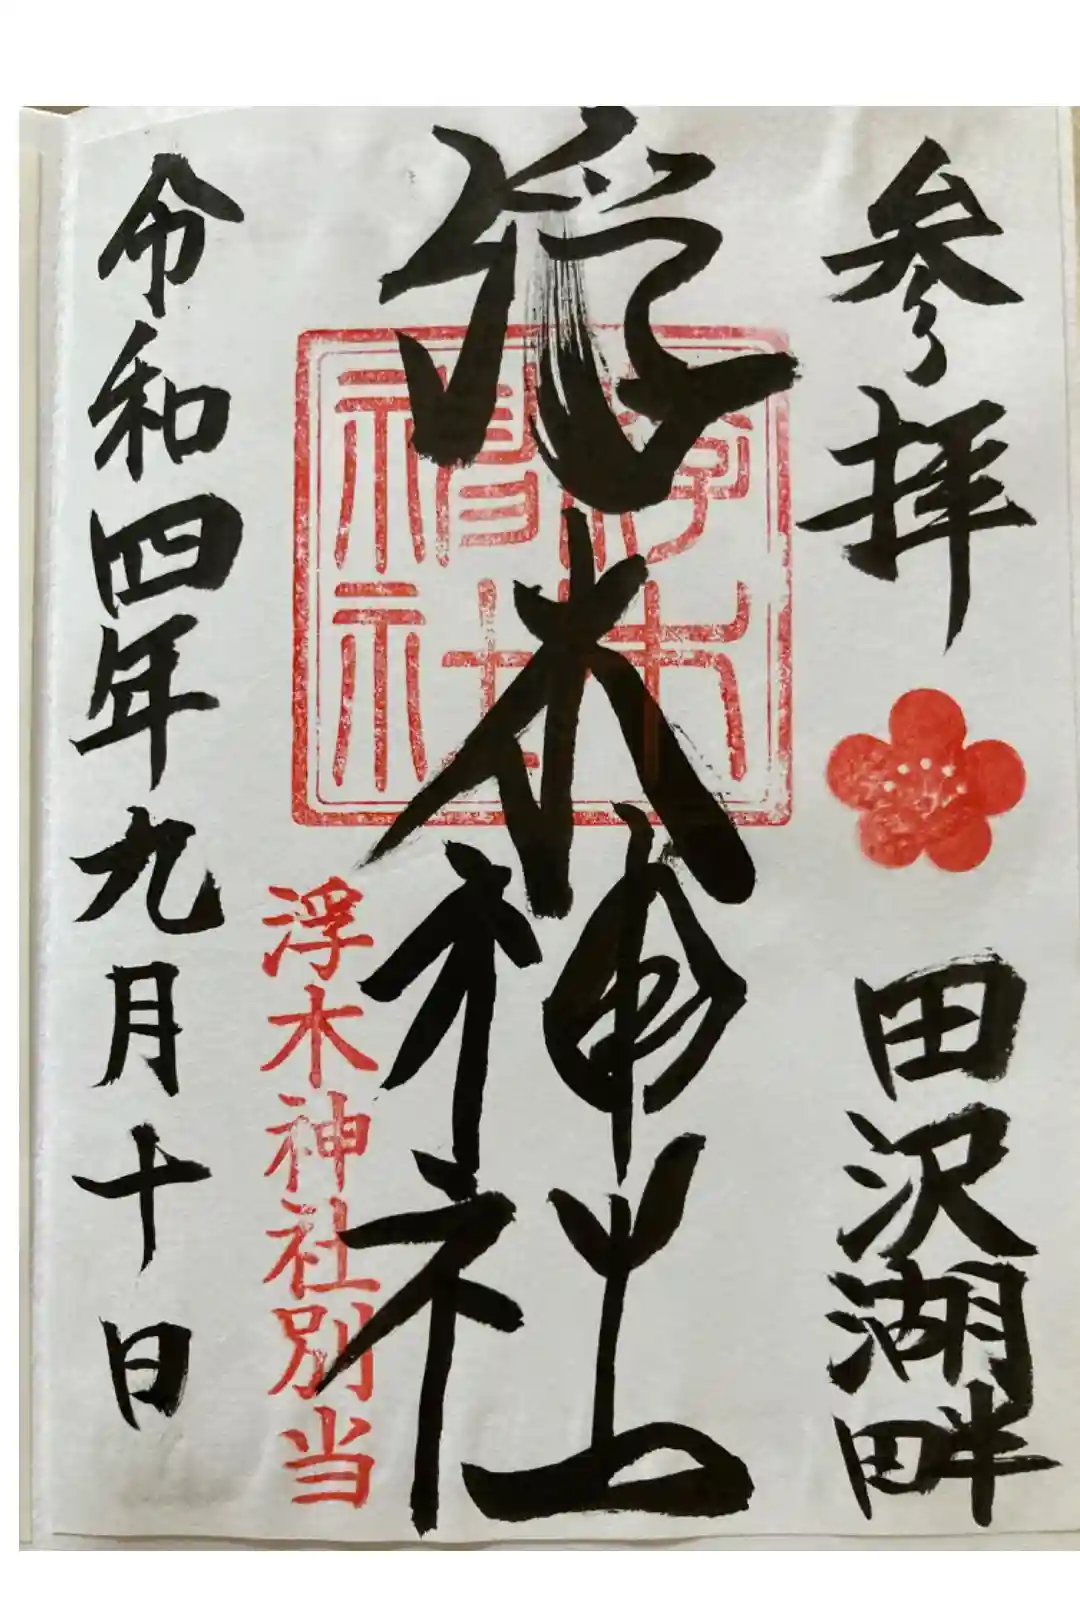 参拝
田沢湖畔
浮木神社
浮木神社
浮木神社別当
令和四年九月十日